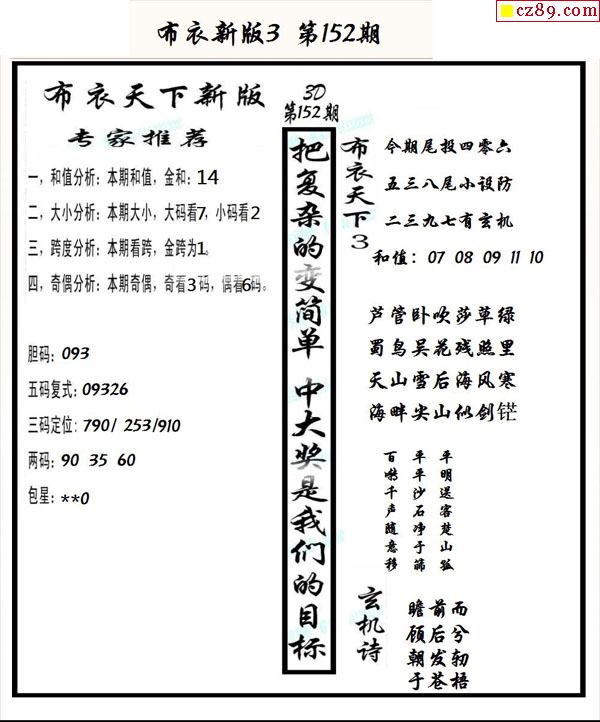 cz89.com
布衣新版3 第152期
布衣天下新版
专家推荐
一，和值分析：本期和值，金和：14
二，大小分析：本期大小，大码看7，小码看2
三，跨度分析：本期看跨，金跨为1。
四，奇偶分析：本期奇偶，奇看3码，偶看6码。
胆码：093
五码复式：09326
三码定位：790/ 253/910
两码：90 35 60
包星：**0
3D
第152期
把复杂的变简单 中大奖是我们的目标
布衣天下3
今期尾投四零六
五三八尾小设防
二三九七有玄机
和值：07 08 09 11 10
芦管卧吹莎草绿
蜀鸟吴花残照里
天山雪后海风寒
海畔尖山似剑铓
百啭千声随意移
平平沙石净于筛
平明送客楚山孤
玄机诗
瞻前而
顾后兮
朝发轫
于苍梧